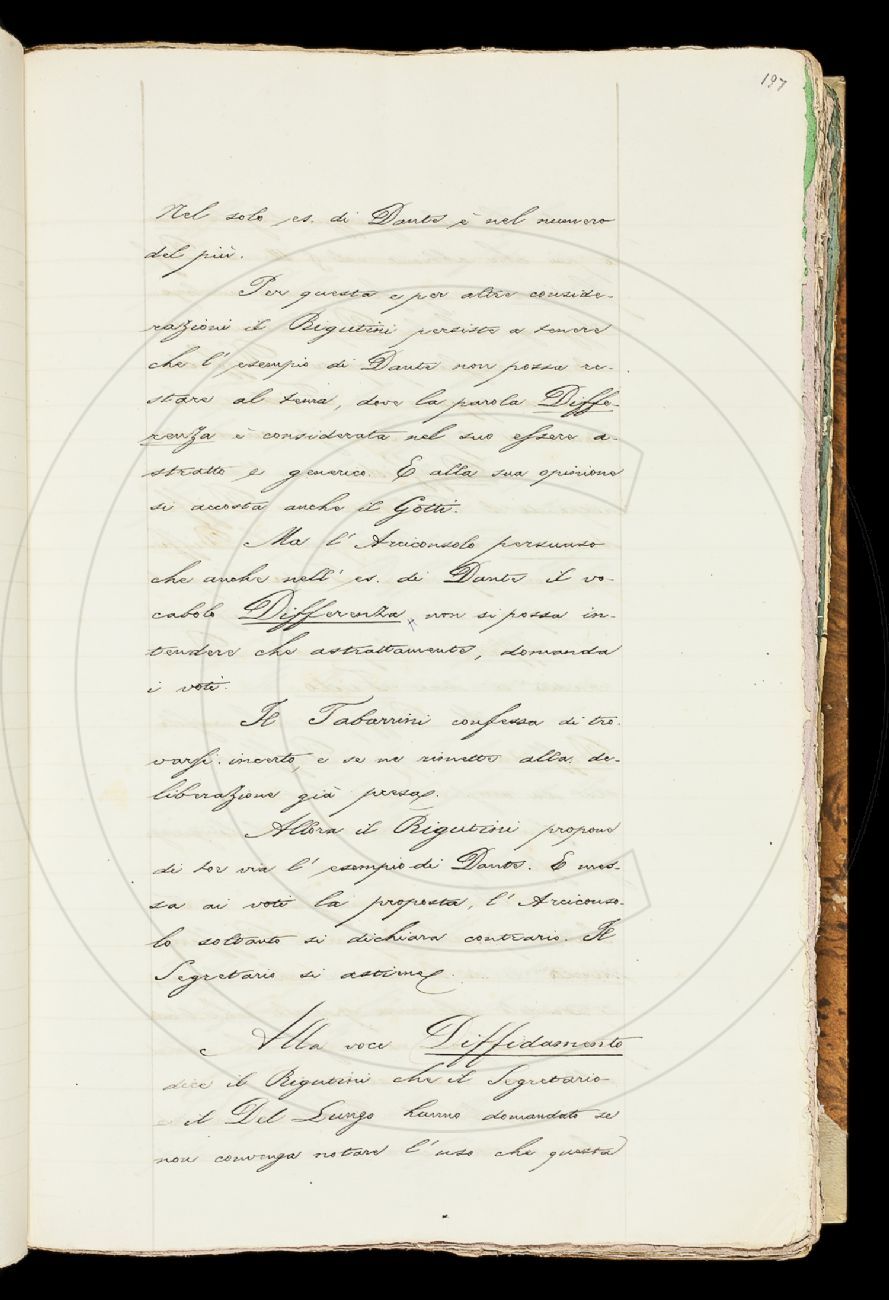 197
Nel solo es. di Dante è nel numero
del più.
Per questa e per altre conside-
razioni il Rigutini persiste a tenere
che l'esempio di Dante non possa re-
stare al tema, dove la parola Diffe-
renza è considerata nel suo essere a-
stratto e generico. E alla sua opinione
si accosta anche il Gotti.
Ma l'Arciconsolo persuaso
che anche nell'es. di Dante il vo-
cabolo Differenza non si possa in-
tendere che astrattamente, domanda
i voti.
Il Tabarrini confessa di tro-
varsi incerto, e se ne rimette alla de-
liberazione già presa.
Allora il Rigutini propone
di tor via l'esempio di Dante. E mes-
sa ai voti la proposta, l'Arciconso-
lo soltanto si dichiara contrario. Il
Segretario si astiene.
Alla voce Diffidamento
dice il Rigutini che il Segretario
e il Del Lungo hanno domandato se
non convenga notare l'uso che questa